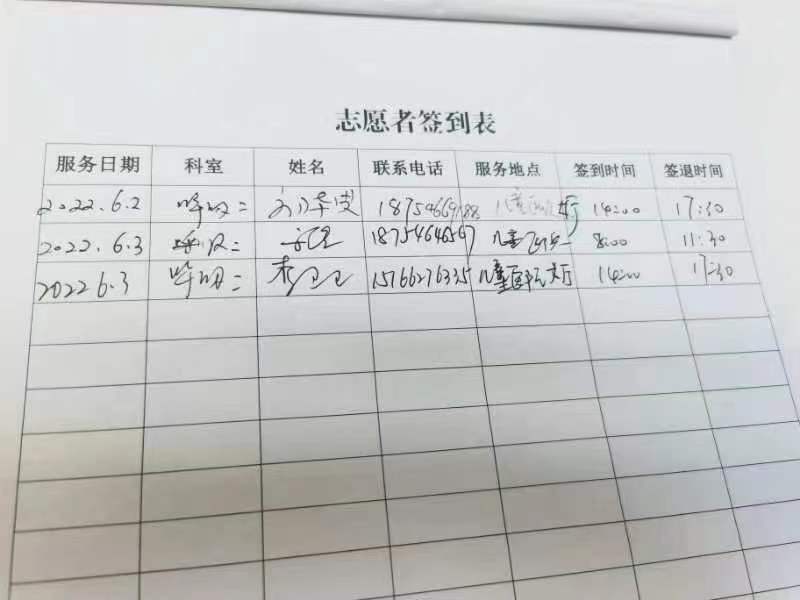 志愿者签到表
服务日期 科室 姓名 联系电话 服务地点 签到时间 签退时间
2022.6.2 呼吸二 18754669188 儿童医院 14:00 17:30
2022.6.3 呼吸二 18754646567 儿童医院 8:00 11:30
2022 6.3 呼吸二 15766276335 儿童医院大厅 14:00 17:30